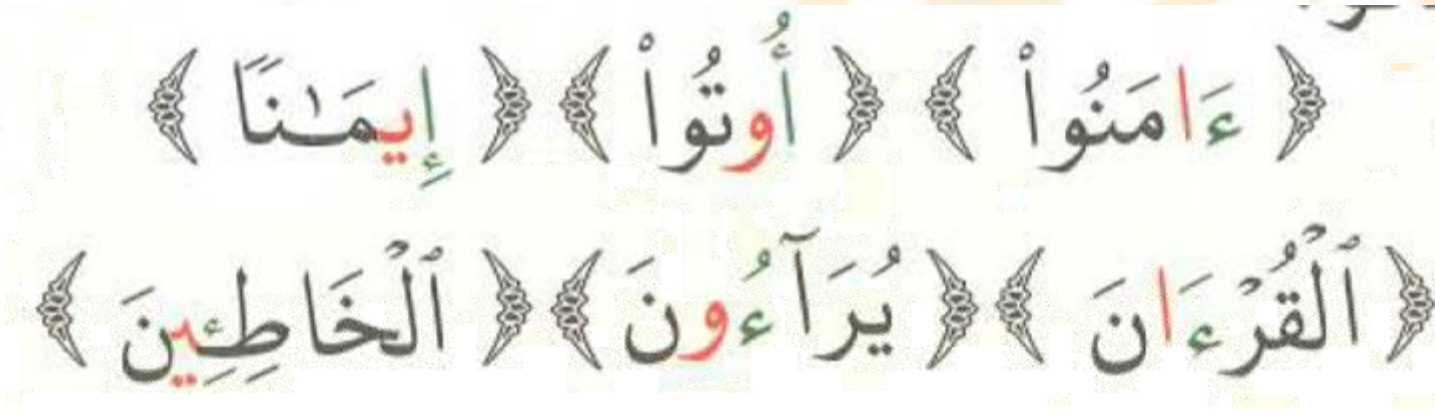 ﴿ ءَامَنُوا۟ ﴾ ﴿ أُوتُوا۟ ﴾ ﴿ إِيمَـٰنًا ﴾
﴿ ٱلْقُرْءَانَ ﴾ ﴿ يُرَآءُونَ ﴾ ﴿ ٱلْخَاطِـِٔينَ ﴾